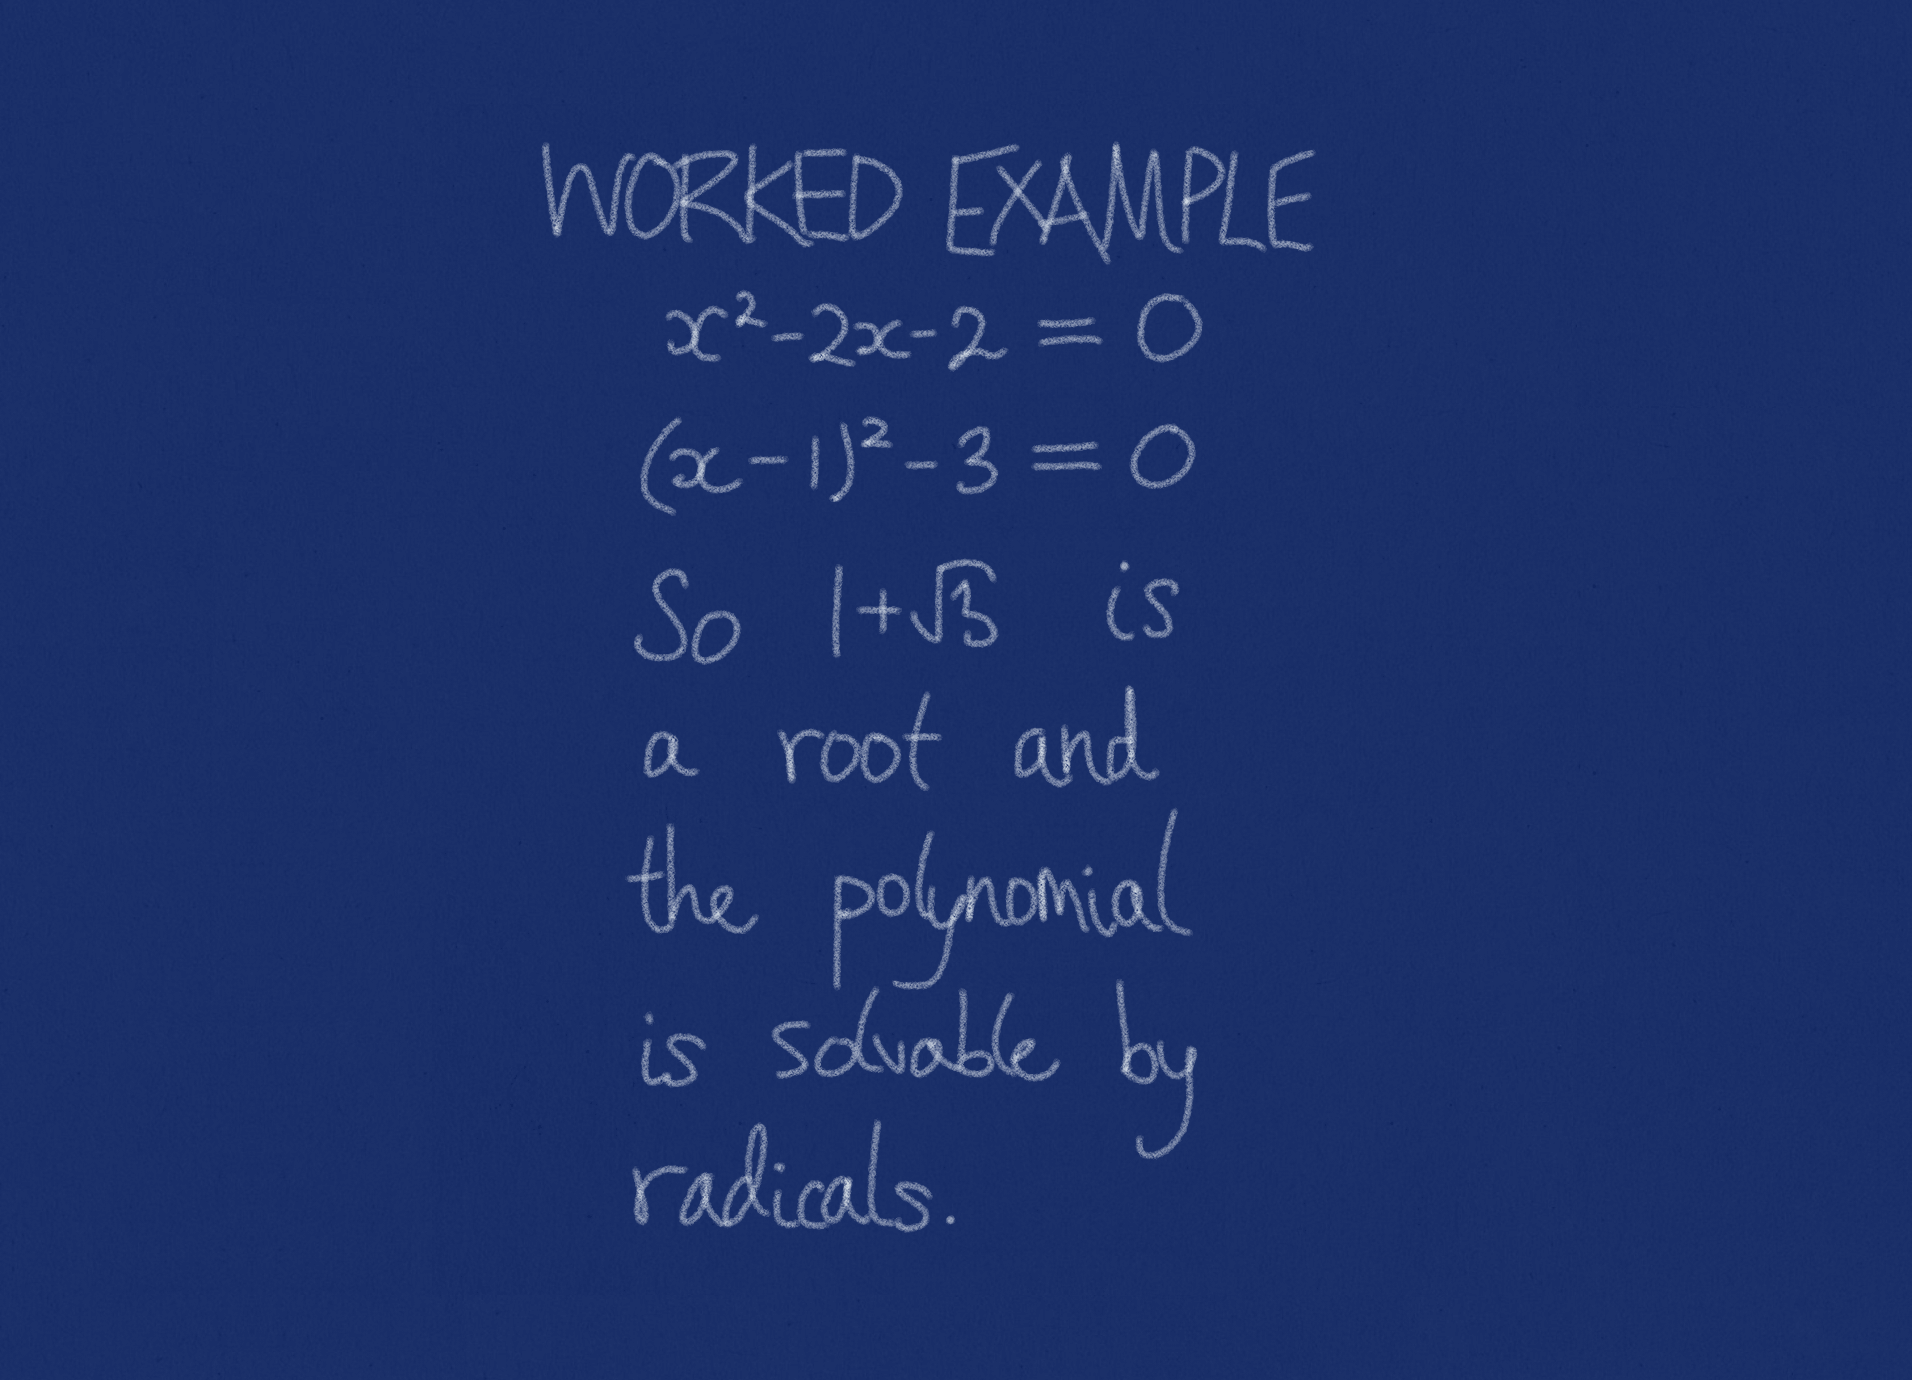 WORKED EXAMPLE
x² - 2x - 2 = 0
(x - 1)² - 3 = 0
So 1+√3 is
a root and
the polynomial
is solvable by
radicals.